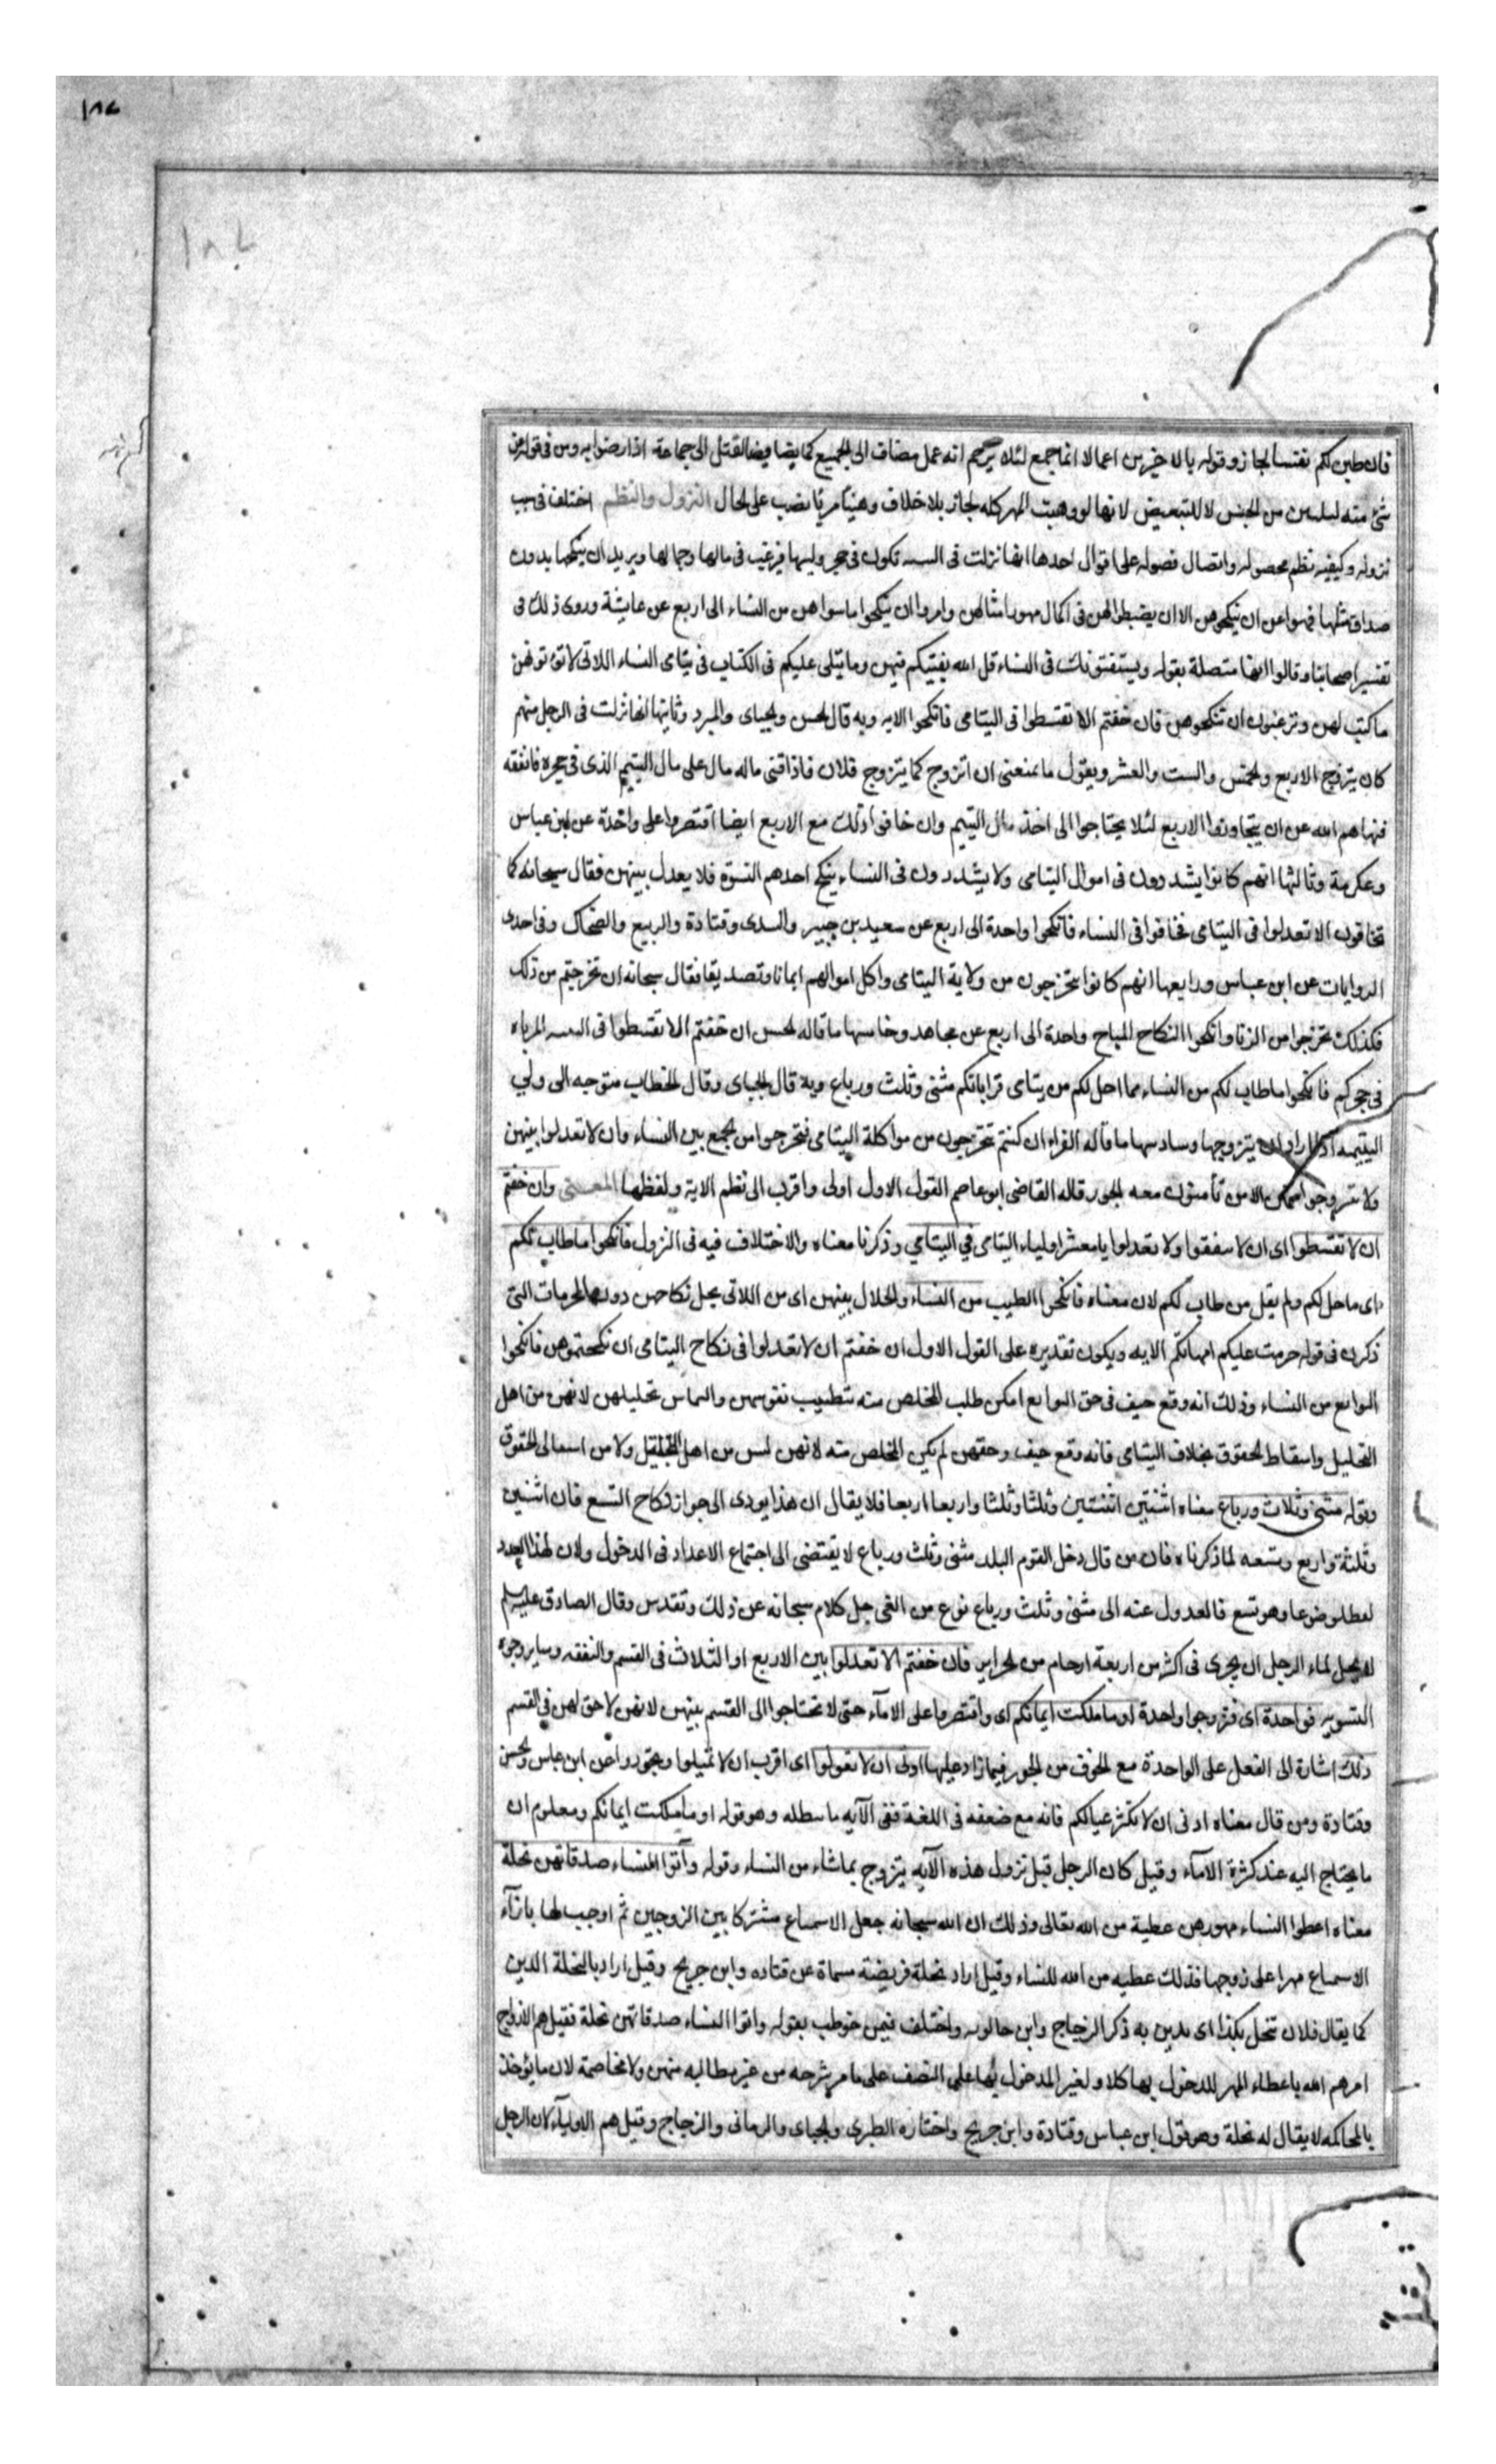 ١٨٧
١٨٧
فان طبن لكم نفسا لجاز وقوله بالاخسرين اعمالا انما جمع لئلا يتوهم انه عمل مضاف الى الجميع كما يضاف القتل الى جماعة اذا رضوا به ومن في قوله عن
شئ منه لتبيين من الجنس لا للتبعيض لانها لو وهبت المهر كله لجاز بلا خلاف وهنيئا مريئا نصب على الحال النزول والنظم اختلف في سبب
نزوله وكيفية نظم محصوله واتصال فصوله على اقوال احدها انها نزلت في اليتيمه تكون في حجر وليها فيرغب في مالها وجمالها ويريد ان ينكحها بدون
صداق مثلها فنهوا عن ان ينكحوهن الا ان يقسطوا لهن في اكمال مهور امثالهن وامروا ان ينكحوا ما سواهن من النساء الى اربع عن عايشة وروى ذلك في
تفسير اصحابنا وقالوا انها متصلة بقوله ويستفتونك في النساء قل الله يفتيكم فيهن وما يتلى عليكم في الكتاب في يتامى النساء اللاتي لا تؤتونهن
ما كتب لهن وترغبون ان تنكحوهن فان خفتم الا تقسطوا في اليتامى فانكحوا الايه وبه قال الحسن والجبائى والمبرد وثانيها انها نزلت في الرجل منهم
كان يتزوج الاربع والخمس والست والعشر ويقول ما يمنعنى ان اتزوج كما يتزوج فلان فاذا فنى ماله مال على مال اليتيم الذى في حجره فانفقه
فنهاهم الله عن ان يتجاوزوا الاربع لئلا يحتاجوا الى اخذ مال اليتيم وان خافوا ذلك مع الاربع ايضا اقتصروا على واحدة عن ابن عباس
وعكرمة وثالثها انهم كانوا يشددون في اموال اليتامى ولا يشددون في النساء ينكح احدهم النسوة فلا يعدل بينهن فقال سبحانه كما
تخافون الا تعدلوا في اليتامى فخافوا في النساء فانكحوا واحدة الى اربع عن سعيد بن جبير والسدى وقتادة والربيع والضحاك وفي احدى
الروايات عن ابن عباس ورابعها انهم كانوا يتحرجون من ولاية اليتامى واكل اموالهم ايمانا وتصديقا فقال سبحانه ان تحرجتم من ذلك
فكذلك تحرجوا من الزنا وانكحوا النكاح المباح واحدة الى اربع عن مجاهد وخامسها ما قاله الحسن ان خفتم الا تقسطوا في اليتيمه المرباه
في حجركم فانكحوا ما طاب لكم من النساء مما احل لكم من يتامى قراباتكم مثنى وثلث ورباع وبه قال الجبائى وقال الخطاب متوجه الى ولي
اليتيمه اذا اراد ان يتزوجها وسادسها ما قاله الفراء ان كنتم تتحرجون من مواكلة اليتامى فتحرجوا من الجمع بين النساء وان لا تعدلوا بينهن
ولا تتزوجوا منهن الا من تأمنون معه الجور قاله القاضى ابو عاصم القول الاول اولى واقرب الى نظم الاية ولفظها المعـنى وان خفتم
ان لا تقسطوا اى ان لا تنصفوا ولا تعدلوا يا معشر اولياء اليتامى في اليتامى وذكرنا معناه والاختلاف فيه في النزول فانكحوا ما طاب لكم
اى ما حل لكم ولم يقل من طاب لكم لان معناه فانكحوا الطيب من النساء والحلال بينهن اى من اللاتى يحل نكاحهن دون المحرمات التى
ذكرن في قوله حرمت عليكم امهاتكم الايه ويكون تقديره على القول الاول ان خفتم ان لا تعدلوا في نكاح اليتامى ان نكحتموهن فانكحوا
البوالغ من النساء وذلك انه وقع حيف في حق البوالغ امكن طلب المخلص منه بتطييب نفوسهن والتماس تحليلهن لانهن من اهل
التحليل واسقاط الحقوق بخلاف اليتامى فانه وقع حيف وحقهن لم يكن المخلص منه لانهن ليس من اهل التحليل ولا من اسقاط الحقوق
وقوله مثنى وثلاث ورباع معناه اثنتين اثنتين وثلثا وثلثا واربعا اربعا فلا يقال ان هذا يودى الى جواز نكاح التسع فان اثنين
وثلثة واربع وتسعه لما ذكرناه فان من قال دخل القوم البلد مثنى وثلث ورباع لا يقتضى الى اجتماع الاعداد في الدخول ولان لهذا العدد
لفظا موضوعا وهو تسع فالعدول عنه الى مثنى وثلث ورباع نوع من العى جل كلام سبحانه عن ذلك وتقدس وقال الصادق عليه السلم
لا يحل لماء الرجل ان يجرى في اكثر من اربعة ارحام من الحراير فان خفتم الا تعدلوا بين الاربع او الثلاث في القسم والنفقه وساير وجوه
التسويه فواحدة اى فتزوجوا واحدة او ما ملكت ايمانكم اى واقتصروا على الامآء حتى لا تحتاجوا الى القسم بينهن لانهن لا حق لهن في القسم
ذلك اشارة الى الفعل على الواحدة مع الخوف من الجور فيما زاد عليها ادنى ان لا تعولوا اى اقرب ان لا تميلوا وتجوروا عن ابن عباس والحسن
وقتادة ومن قال معناه ادنى ان لا تكثر عيالكم فانه مع ضعفه في اللغة ففى الآيه ما يبطله وهو قوله او ما ملكت ايمانكم ومعلوم ان
ما يحتاج اليه عند كثرة الامآء وقيل كان الرجل قبل نزول هذه الآيه يتزوج بما شاء من النساء وقوله وآتوا النساء صدقاتهن نحلة
معناه اعطوا النساء مهورهن عطية من الله تعالى وذلك ان الله سبحانه جعل الاستمتاع مشتركا بين الزوجين ثم اوجب لها بازآء
الاستمتاع مهرا على زوجها فذلك عطيه من الله للنساء وقيل اراد نحلة فريضة مسماة عن قتاده وابن جريج وقيل اراد بالنحلة الدين
كما يقال فلان ينتحل بكذا اى يدين به ذكر الزجاج وابن خالويه واختلف فيمن خوطب بقوله واتوا النساء صدقاتهن نحلة فقيل هم الازواج
امرهم الله باعطاء المهر للمدخول بها كلا ولغير المدخول بها على النصف على ما مر شرحه من غير مطالبه منهن ولا مخاصمة لان ما يؤخذ
بالمحاكمه لا يقال له نحلة وهو قول ابن عباس وقتادة وابن جريج واختاره الطبرى والجبائى والرمانى والزجاج وقيل هم الاولياء لان الرجل